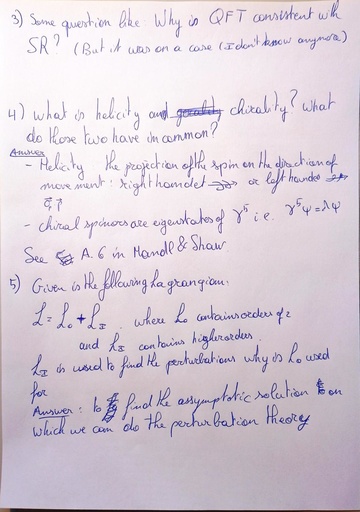 3) Some question like: Why is QFT consistent with
SR? (But it was on a case (I don't know anymore)
4) what is helicity and chirality? What
do those two have in common?
Answer
- Helicity the projection of the spin on the direction of
movement: right handet or left handet
- chiral spinors are eigenstates of γ⁵ i.e. γ⁵ψ=λψ
See A.6 in Mandl & Shaw
5) Given is the following Lagrangian:
L = L₀ + L_I where L₀ contains orders of 2
and L_I contains higher orders.
L_I is used to find the perturbations why is L₀ used
for
Answer: to find the assymptotic solution on
which we can do the perturbation theory